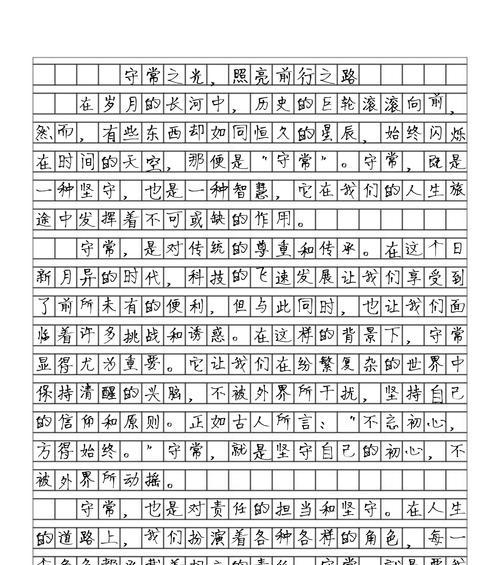 守常之光，照亮前行之路
在岁月的长河中，历史的巨轮滚滚向前，
然而，有些东西却如同恒久的星辰，始终闪烁
在时间的天空，那便是“守常”。守常，既是
一种坚守，也是一种智慧，它在我们的人生旅
途中发挥着不可或缺的作用。
守常，是对传统的尊重和传承。在这个日
新月异的时代，科技的飞速发展让我们享受到
了前所未有的便利，但与此同时，也让我们面
临着许多挑战和诱惑。在这样的背景下，守常
显得尤为重要。它让我们在纷繁复杂的世界中
保持清醒的头脑，不被外界所干扰，坚持自己
的信仰和原则。正如古人所言：“不忘初心，
方得始终。”守常，就是坚守自己的初心，不
被外界所动摇。
守常，也是对责任的担当和坚守。在人生
的道路上，我们扮演着各种各样的角色，每一